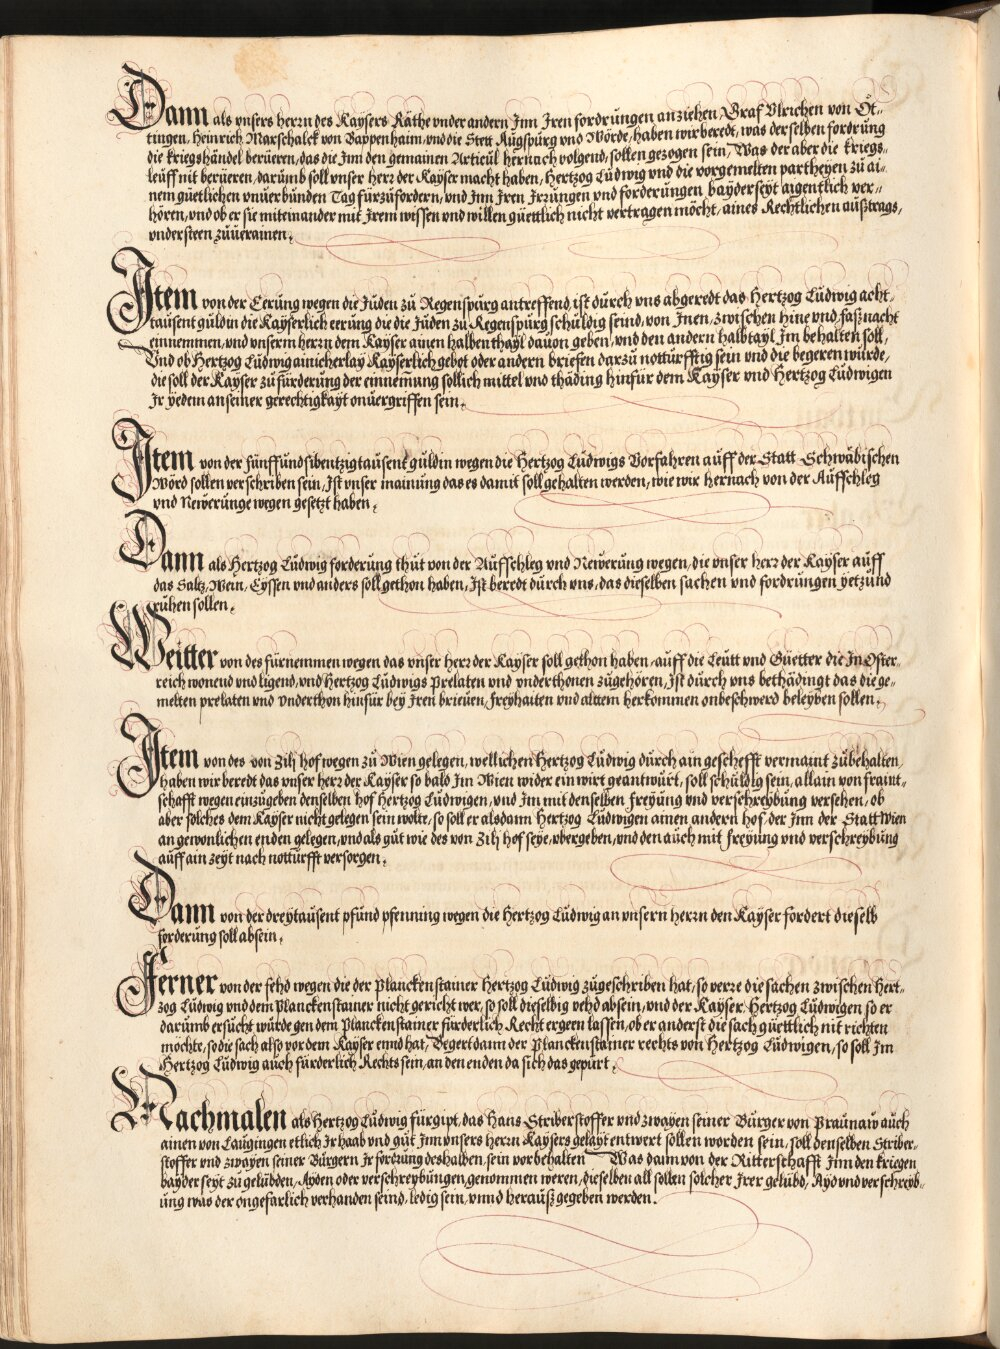 Dann als vnsers herrn des Kaysers Räthe vnder andern Inn Iren forderungen anziehen, Graf Vlrichen von Öt-
tingen, Heinrich Marschalck von Bappenhaim, vnd die Stett Augspurg vnd Wörde, haben wir beredt, was derselben fordrung
die kriegshändel berüeren, das die Inn den gemainen Articül hernach volgend, sollen gezogen sein, Was der aber die kriegs-
leüff nit berüeren, darümb soll vnser herz der Kayser macht haben, Hertzog Lüdwig vnd die vorgemelten partheyen zü ai-
nem güetlichen vnüerbünden Tag fürzüfordern, vnd Inn Iren Irzüngen vnd forderüngen bayderseyt aigentlich ver-
hören, vnd ob er sie miteinander mit Irem wissen vnd willen güettlich nicht vertragen möcht, aines Rechtlichen außtrags,
vndersteen züuerainen.
Item von der Eerüng wegen die Jüden zü Regenspürg antreffend, ist dürch vns abgeredt das Hertzog Lüdwig acht-
taüsent güldin die Kayserlich eerüng die die Jüden zü Regenspürg schüldig seind, von Inen, zwischen hine vnd faßnacht
einnemmen, vnd vnserm herrn dem Kayser ainen halben thayl dauon geben, vnd den andern halbtayl Im behalten soll,
Vnd ob Hertzog Lüdwig ainicherlay Kayserlich gebot oder andern briefen darzü nottürfftig sein vnd die begeren würde,
die soll der Kayser zü fürderüng der einnemüng sollich mittel vnd thäding hinfür dem Kayser vnd Hertzog Lüdwigen
Ir yedem an seiner gerechtigkayt onuergriffen sein.
Item von der fünffündsibentzigtaüsent güldin wegen die Hertzog Lüdwigs Vorfahren aüff der Statt Schwäbischen
Wörd sollen verschriben sein, Ist vnser mainüng das es damit soll gehalten werden, wie wir hernach von der Aüffschleg
vnd Neweründe wegen gesetzt haben.
Dann als Hertzog Lüdwig forderüng thüt von der Aüffschleg vnd Newerüng wegen, die vnser herz der Kayser aüff
das Saltz, Wein, Eyssen vnd anders soll gethon haben, Ist beredt dürch vns, das dieselben sachen vnd fordrüngen yetzünd
rühen sollen.
Weitter von des fürnemmen wegen das vnser herz der Kayser soll gethon haben, aüff die Leütt vnd Güetter die In Öster-
reich wonend vnd ligend, vnd Hertzog Lüdwigs Prelaten vnd vnderthonen zügehören, Ist dürch vns bethädingt das die ge-
melten prelaten vnd Vnderthon hinfür bey Iren brieuen, freyhaiten vnd alttem herkommen onbeschwerd beleyben sollen.
Item von des von Zilj hof wegen zü Wien gelegen, wellichen Hertzog Lüdwig dürch ain gescheffft vermaint zübehalten,
haben wir beredt das vnser herz der Kayser so bald Im Wien wider ein wirt geantwürt, soll schüldig sein, allain von fraint-
schafft wegen einzügeben denselben hof Hertzog Lüdwigen, vnd Im mit denselben freyüng vnd verschreybüng versehen, ob
aber solches dem Kayser nicht gelegen sein wolte, so soll er alsdann Hertzog Lüdwigen ainen andern hof, der Inn der Statt Wien
an gewonlichen enden gelegen, vnd als güt wie des von Zilj hof seye, vbergeben, vnd den aüch mit freyüng vnd verschreybüng
aüff ain zeyt nach nottürfft versorgen.
Dann von der dreytaüsent pfünd pfenning wegen die Hertzog Lüdwig an vnsern herrn den Kayser fordert dieselb
forderüng soll absein.
Ferner von der fehd wegen die der Planckenstainer Hertzog Lüdwig zügeschriben hat, so verre die sachen zwischen Hert-
zog Lüdwig vnd dem Planckenstainer nicht gericht wer, so soll dieselbig vehd absein, vnd der Kayser, Hertzog Lüdwigen so er
darümb ersücht würde gen dem Planckenstainer fürderlich Recht ergern lassen, ob er anderst die sach güettlich nit richten
möchte, so die sach also vor dem Kayser ennd hat, Begert dann der Planckenstainer rechts von Hertzog Lüdwigen, so soll Im
Hertzog Lüdwig aüch fürderlich Rechts sein, an den enden da sich das gepürt.
Nachmalen als Hertzog Lüdwig fürgipt, das Hans Striberstoffer vnd zwayen seiner Bürger von Praünaw aüch
ainen von Laügingen etlich Ir haab vnd güt Inn vnsers herrn Kaysers gelayt entwert sollen worden sein, soll denselben Striber-
stoffer vnd zwayen seiner Bürgern Ir forderüng deshalben, sein vorbehalten Was dann von der Ritterschafft Inn den kriegen
bayderseyt zü gelübden, Ayden oder verschreybüngen, genommen weren, dieselben all sollen solcher Irer gelübd, Ayd vnd verschreyb-
üng was der ongefarlich verhanden seind, ledig sein, vnnd heraüß gegeben werden.